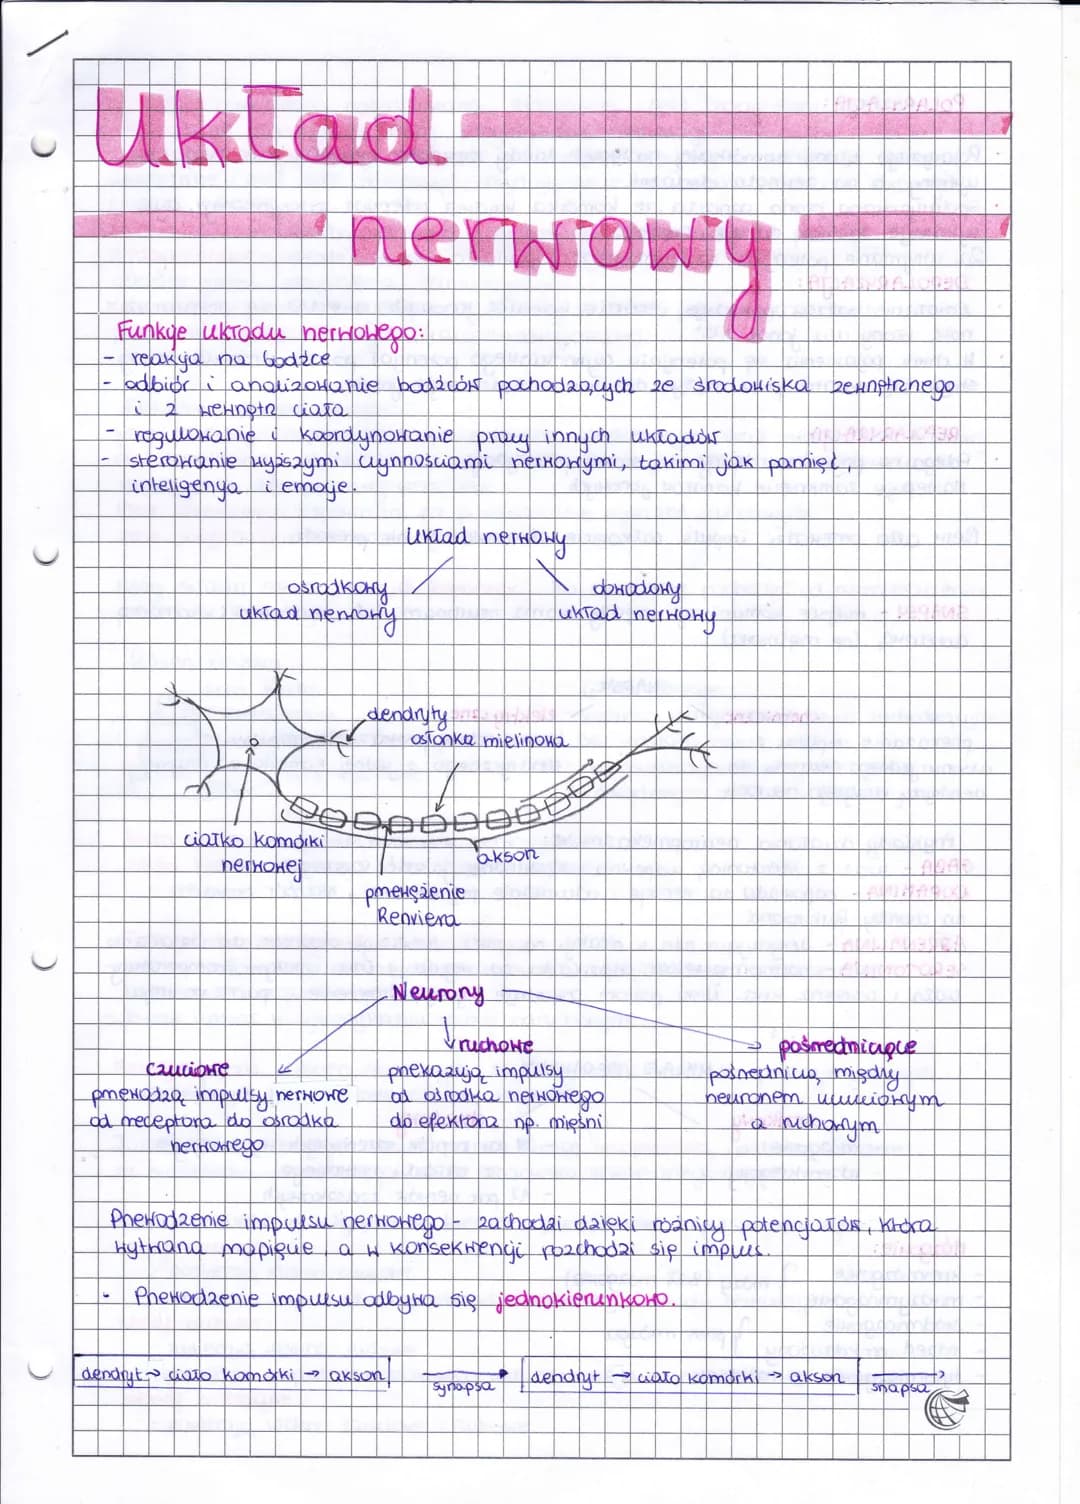 Układ
nerwowy
Funkcje układu nerwowego:
- reakcja na bodźce
- odbiór i analizowanie bodźców pochodzących ze środowiska zewnętrznego
i z wewnątrz ciała
- regulowanie i koordynowanie pracy innych układów
- sterowanie wyższymi czynnościami nerwowymi, takimi jak pamięć,
inteligencja i emocje.
Układ nerwowy
ośrodkowy
układ nerwowy
obwodowy
układ nerwowy
dendryty
osłonka mielinowa
ciałko komórki
nerwowej
akson
przewężenie
Renviera
Neurony
czuciowe
przewodzą impulsy nerwowe
od receptora do ośrodka
nerwowego
ruchowe
przekazują impulsy
od ośrodka nerwowego
do efektora np. mięśni
pośredniczące
pośredniczą między
neuronem czuciowym
a ruchowym
Przewodzenie impulsu nerwowego - zachodzi dzięki różnicy potencjałów, która
wytwarza napięcie, a w konsekwencji rozchodzi się impuls.
• Przewodzenie impulsu odbywa się jednokierunkowo.
dendryt → ciało komórki → akson synapsa dendryt → ciało komórki → akson snapsa